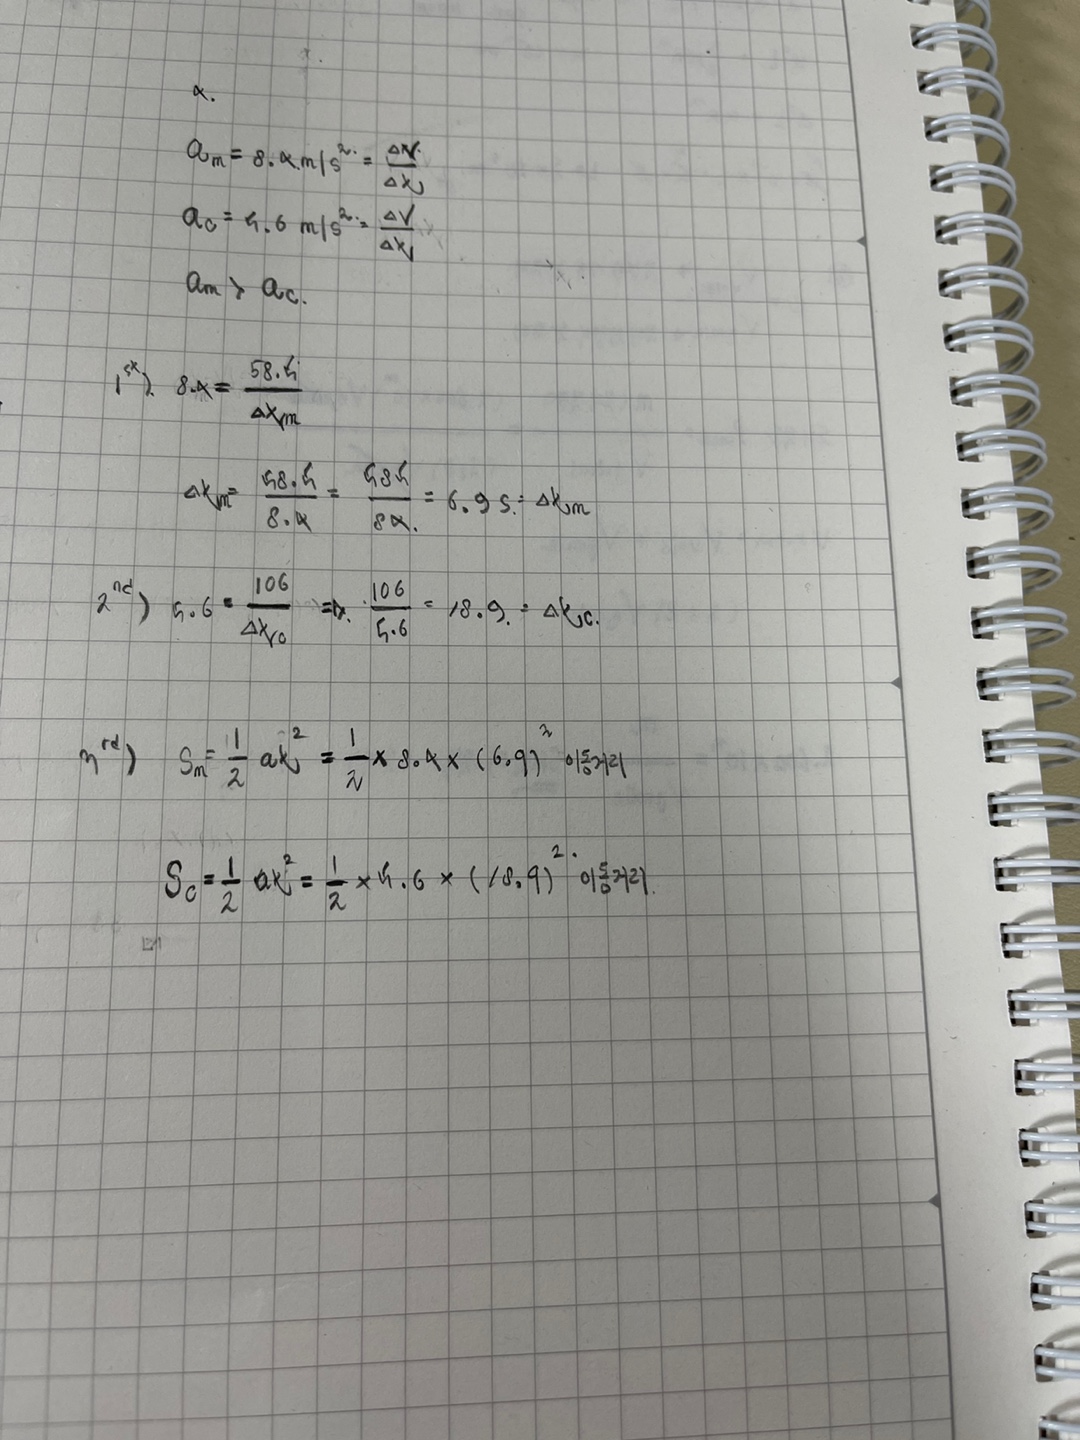 4.
a_m = 8.4 m/s² = ΔV/Δt
a_c = 5.6 m/s² = ΔV/Δt
a_m > a_c.
1st) 8.4 = 58.5/Δt_m
Δt_m = 58.5/8.4 = 585/84. = 6.9 s. = Δt_m
2nd) 5.6 = 106/Δt_c ⇒ 106/5.6 = 18.9. = Δt_c.
3rd) S_m = 1/2 at² = 1/2 × 8.4 × (6.9)² 이동거리
S_c = 1/2 at² = 1/2 × 5.6 × (18.9)² 이동거리